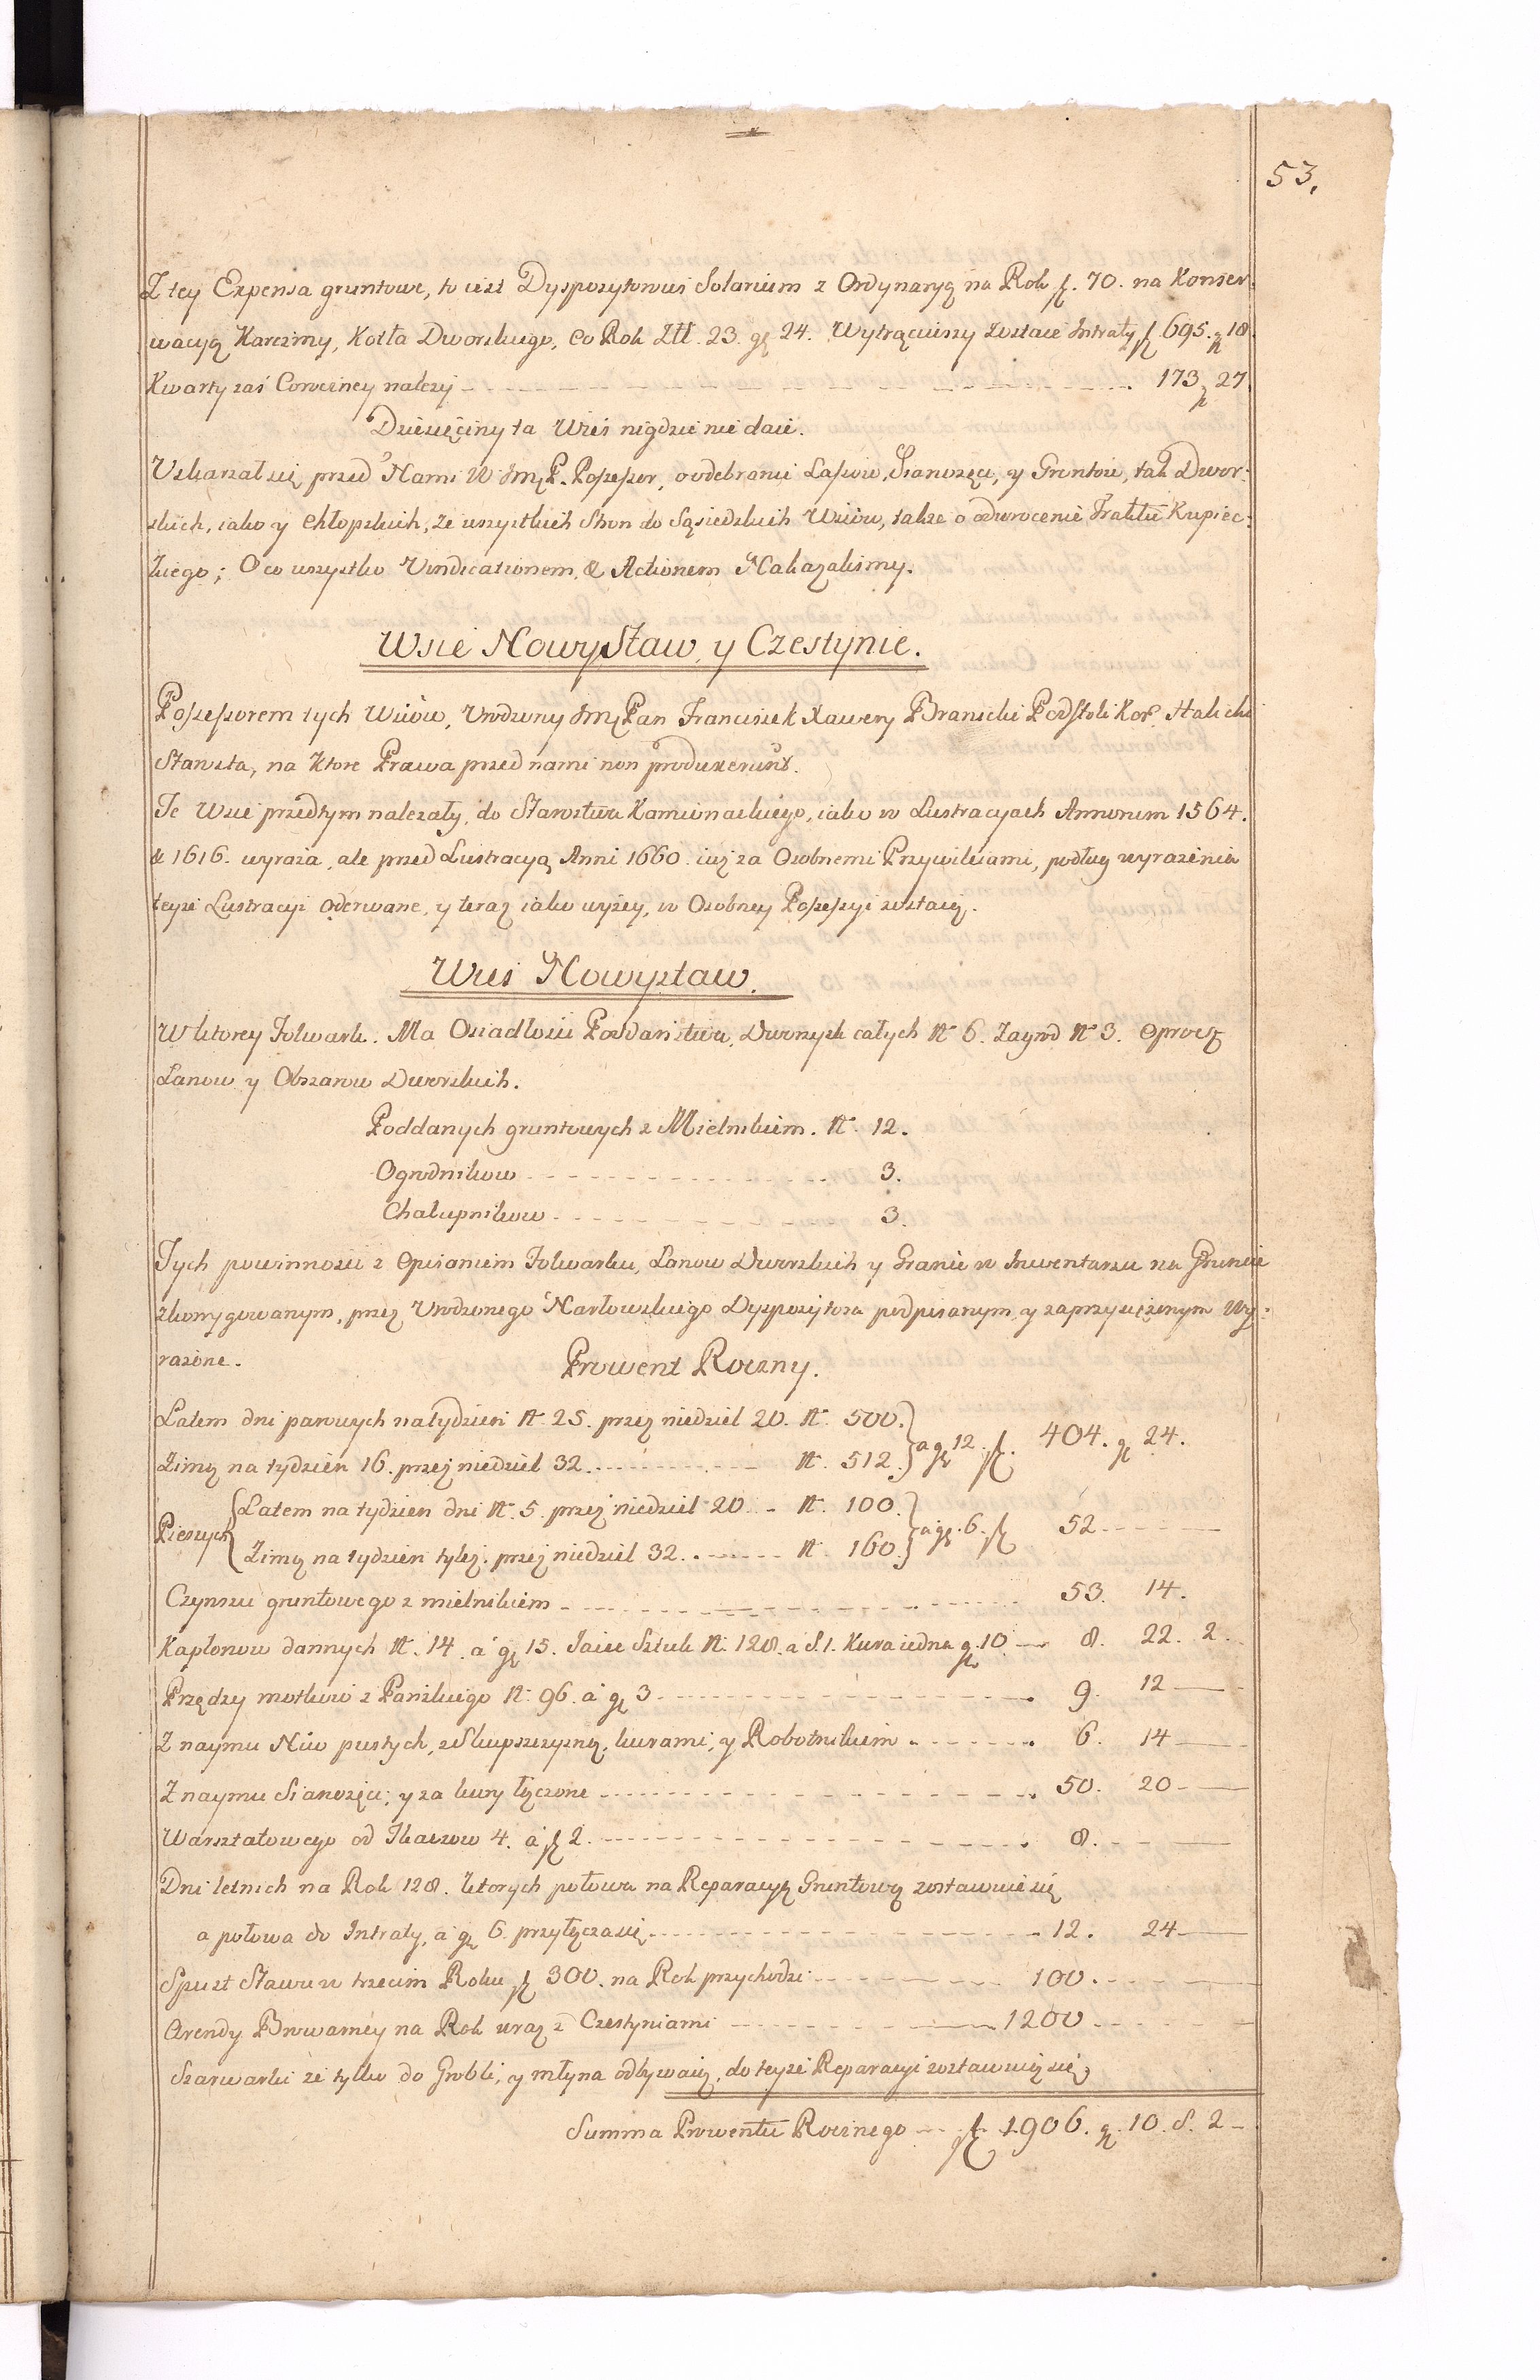 53.
Z tey Expensa gruntowe, to iest Dyspozytorowi Solarium z Ordynaryą na Rok fl. 70. na Konser-
wacyą Karczmy, Kotła Dworskiego, co Rok Złł. 23. gr 24. Wytrąciwszy zostaie Intraty fl 695. gr 18.
Kwarty zaś Coroczney należy 173 gr 27.
Dziesięciny ta Wieś nigdzie nie daie.
Uskarzał się przed Nami W JmP. Possessor, o odebranie Lasów, Sianożęci, y Grontow, tak Dwor-
skich, iako y Chłopskich, ze wszystkich Stron do Sąsiedzkich Wsiow, takze o odwrocenie Traktu Kupiec-
kiego; O co wszystko Vindicationem, & Actionem Nakazalismy.
Wsie NowyStaw, y Czestynie.
Possessorem tych Wsiow, Urodzony Jmć Pan Franciszek Xawery Branicki PodStoli Kor. Halicki
Starosta, na ktore Prawa przed nami non produxerunt.
Te Wsie przedtym nalezały, do Starostwa Kamionackiego, iako w Lustracyach Annorum 1564.
& 1616. wyraża, ale przed Lustracyą Anni 1660. iuż za Osobnemi Przywileiami, podług wyrażenia
teyze Lustracyi oderwane, y teraz iako wyżey, w Osobney Possessyi zostaią.
Wieś Nowystaw.
W ktorey Folwark. Ma Osiadłości Poddaństwa, Dworzysk całych N 6. Zagrod N 3. oprocz
Lanow y Obszarow Dworskich.
Poddanych gruntowych z Mielnikiem. N. 12.
Ogrodnikow 3.
Chałupnikow 3.
Tych powinności z opisaniem Folwarku, Lanow Dworskich y Granic w Inwentarzu na Gruncie
zkorrygowanym, przez Urodzonego Narłowskiego Dyspozytora podpisanym, y zaprzysiężonym wy-
rażone.
Prowent Roczny.
Latem dni parowych na tydzień N. 25. przez niedziel 20. N. 500. } a gr 12. fl. 404. gr 24.
Zimą na tydzień 16. przez niedziel 32. N. 512.
Pieszych { Latem na tydzien dni N. 5. przez niedziel 20 N. 100. } a gr. 6. fl 52
Zimą na tydzien tylez. przez niedziel 32. N. 160.
Czynszu gruntowego z mielnikiem 53. 14.
Kapłonow dannych N. 14. a gr 15. Jaiec Sztuk N. 128. a S. 1. Kura iedna gr. 10 8. 22. 2.
Przędzy motkow z Pańskiego N. 96. a gr 3 9. 12
Z naymu Niw pustych, z Skupszczyzną, kurami, y Robotnikiem 6. 14
Z naymu Sianożęci; y za kury łączone 50. 20
Warsztatowego od Tkaczow 4. a fl 2. 8.
Dni letnich na Rok 128. ktorych połowa na Reparacyą Gruntową zostawuie się
a połowa do Intraty, a gr 6. przyłącza się 12. 24
Spust Stawu w trzecim Roku fl 300. na Rok przychodzi 100.
Arendy Browarney na Rok wraz z Czestyniami 1200
Szarwarki że tylko do Grobli, y młyna odbywaią, do teyze Reparacyi zostawuią się,
Summa Prowentu Rocznego fl 1906. gr. 10. S. 2